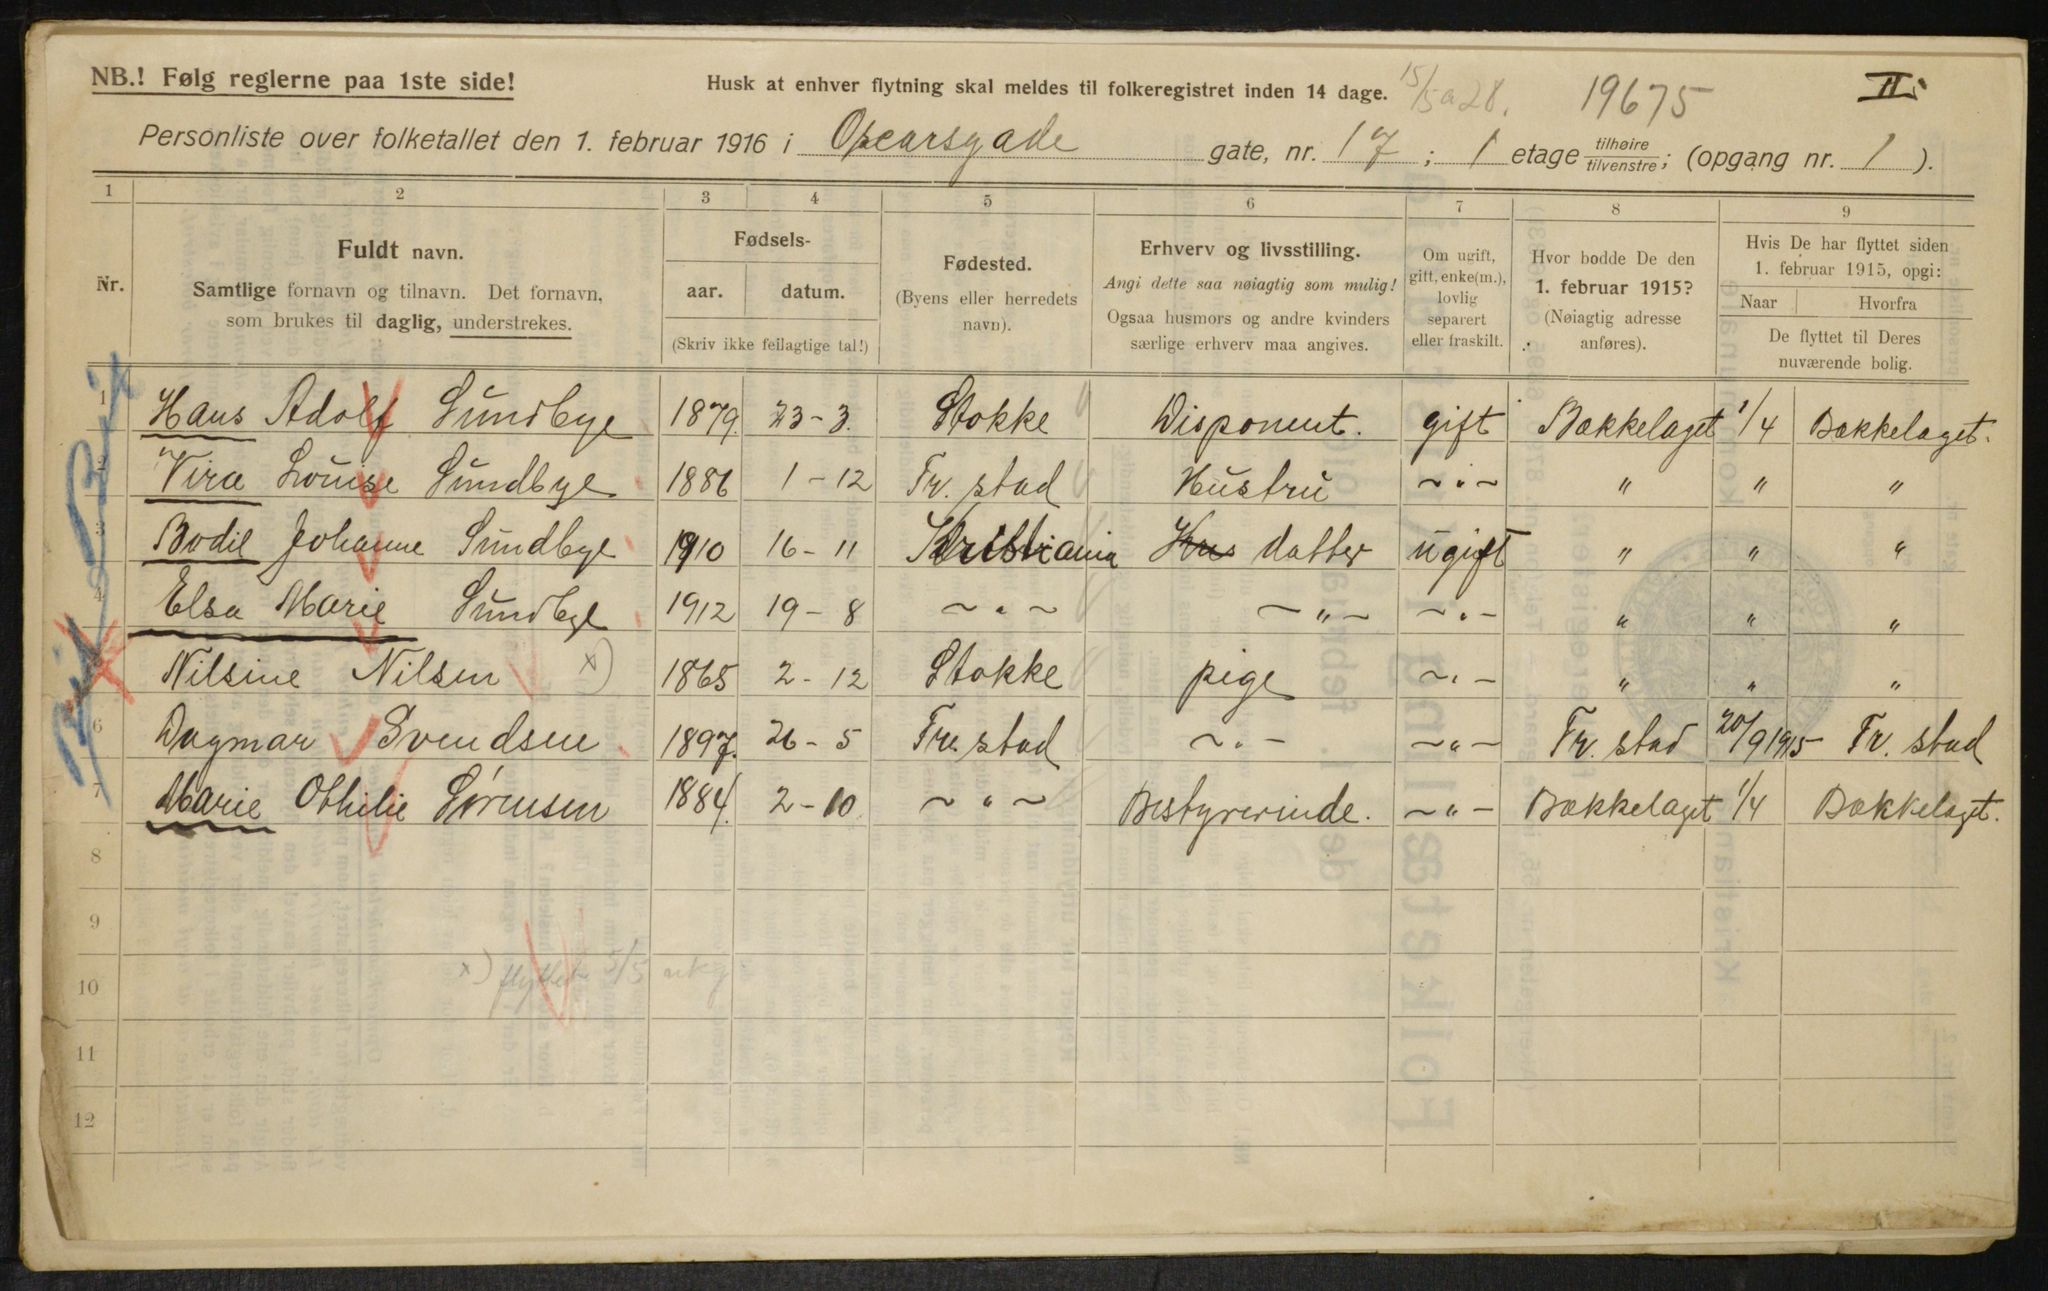 NB.! Følg reglerne paa 1ste side!
Husk at enhver flytning skal meldes til folkeregistret inden 14 dage. 15/5 a 28. 19675 II.
Personliste over folketallet den 1. februar 1916 i Oscarsgade gate, nr. 17; 1 etage tilhøire/tilvenstre; (opgang nr. 1).
1 2 3 4 5 6 7 8 9
Nr.
Fuldt navn.
Samtlige fornavn og tilnavn. Det fornavn,
som brukes til daglig, understrekes.
Fødsels-
aar. datum.
(Skriv ikke feilagtige tal!)
Fødested.
(Byens eller herredets
navn).
Erhverv og livsstilling.
Angi dette saa nøiagtig som mulig!
Ogsaa husmors og andre kvinders
særlige erhverv maa angives.
Om ugift,
gift, enke(m.),
lovlig
separert
eller fraskilt.
Hvor bodde De den
1. februar 1915?
(Nøiagtig adresse
anføres).
Hvis De har flyttet siden
1. februar 1915, opgi:
Naar Hvorfra
De flyttet til Deres
nuværende bolig.
1 Hans Adolf Sundbye 1879. 23-3. Stokke Disponent. gift Bækkelaget 1/4 Bækkelaget.
2 Vira Louise Sundbye 1886 1-12 Fr. stad Hustru ~"~ " " "
3 Bodil Johanne Sundbye 1910 16-11 Kristiania Hus datter ugift " " "
4 Elsa Marie Sundbye 1912 19-8 ~"~ ~"~ ~"~ " " "
5 Nilsine Nilsen x) 1865 2-12 Stokke pige ~"~ " " "
6 Dagmar Svendsen 1897. 26-5 Fr. stad ~"~ ~"~ Fr. stad 20/9 1915 Fr. stad
7 Marie Othilie Sørensen 1884. 2-10 ~"~ Bestyrerinde. ~"~ Bækkelaget 1/4 Bækkelaget.
8
9
10 x) flyttet 5/5
11
12